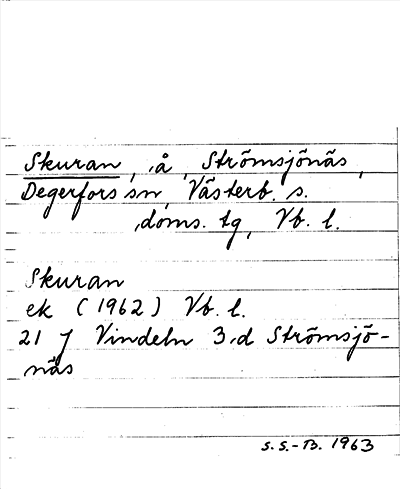 Skuran, å, Strömsjönäs,
Degerfors sn, Västerb. s.
doms. tg, Vb. l.
Skuran
ek (1962) Vb. l.
21 J Vindeln 3,d Strömsjö-
näs
S. S.-B. 1963